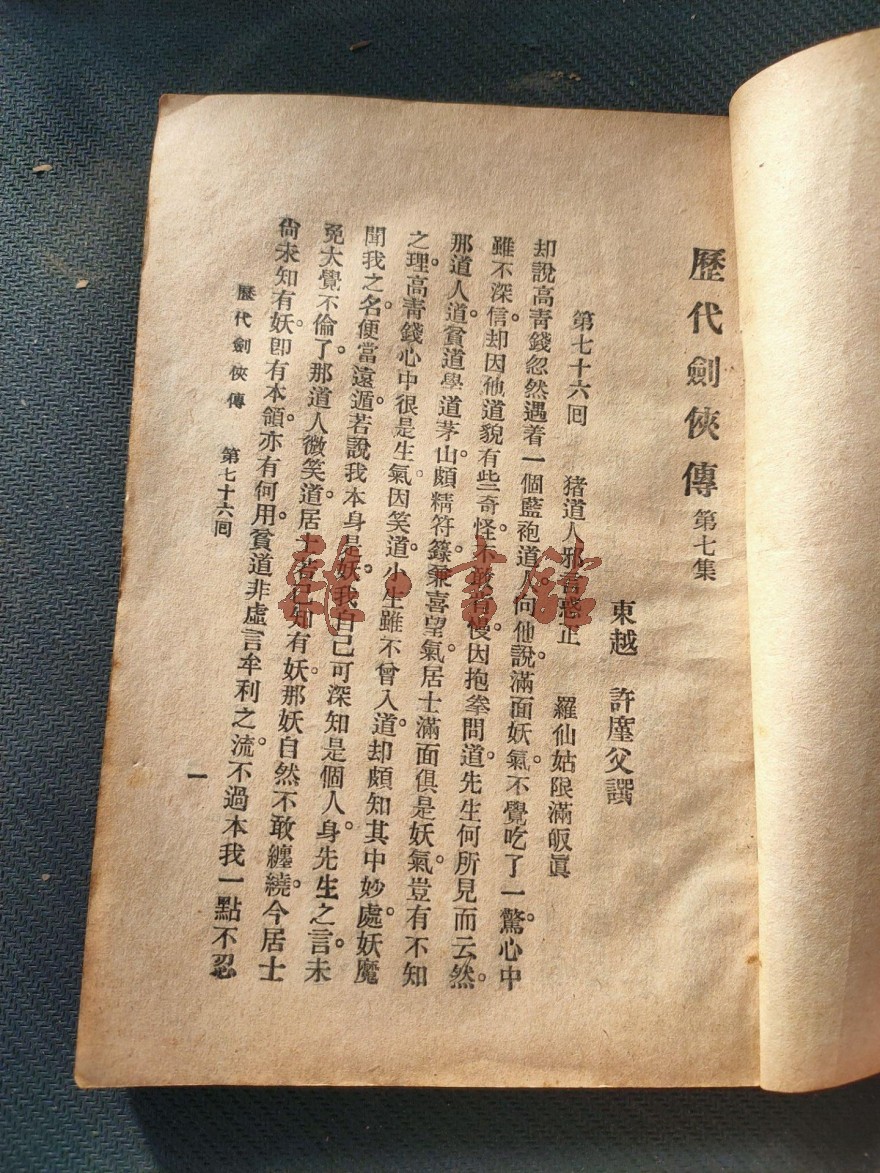 歷代劍俠傳 第七集
東越 許廑父譔
第七十六囘 猪道人邪言惑正 羅仙姑限滿皈眞
却說高青錢忽然遇着一個藍袍道人。向他說滿面妖氣。不覺吃了一驚。心中
雖不深信。却因他道貌有些奇怪。不敢怠慢。因抱拳問道。先生何所見而云然。
那道人道。貧道學道茅山。頗精符籙。兼喜望氣。居士滿面俱是妖氣。豈有不知
之理。高青錢心中很是生氣。因笑道。小生雖不曾入道。却頗知其中妙處。妖魔
聞我之名。便當遠遁。若說我本身是妖。我自己可深知是個人身。先生之言。未
免大覺不倫了。那道人微笑道。居士若已知有妖。那妖自然不敢纏繞。今居士
尙未知有妖。卽有本領。亦有何用。貧道非虛言牟利之流。不過本我一點不忍
歷代劍俠傳 第七十六囘
一
雜·書館